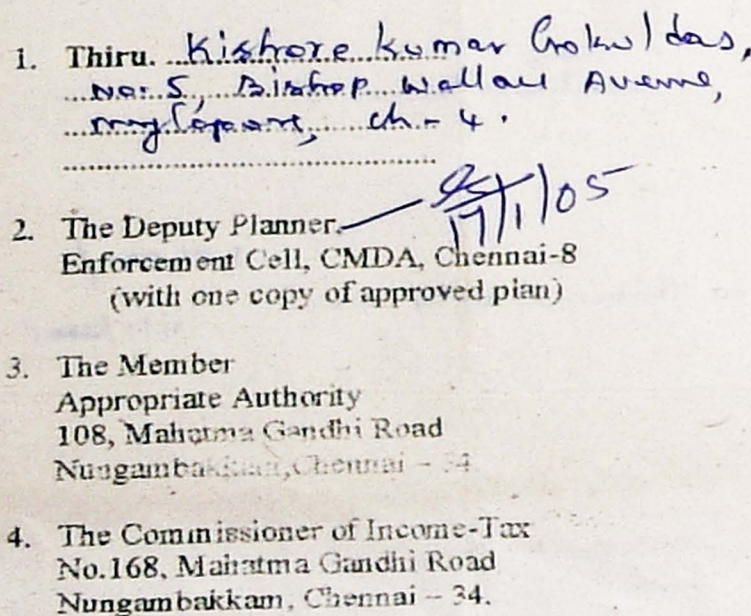 1. Thiru. Kishore Kumar Gokuldas,
No: 5, Bishop Wallace Avenue,
Mylapore, ch - 4.
2. The Deputy Planner. 17/1/05
Enforcement Cell, CMDA, Chennai-8
(with one copy of approved plan)
3. The Member
Appropriate Authority
108, Mahatma Gandhi Road
Nungambakkam, Chennai - 34.
4. The Commissioner of Income-Tax
No.168, Mahatma Gandhi Road
Nungambakkam, Chennai - 34.